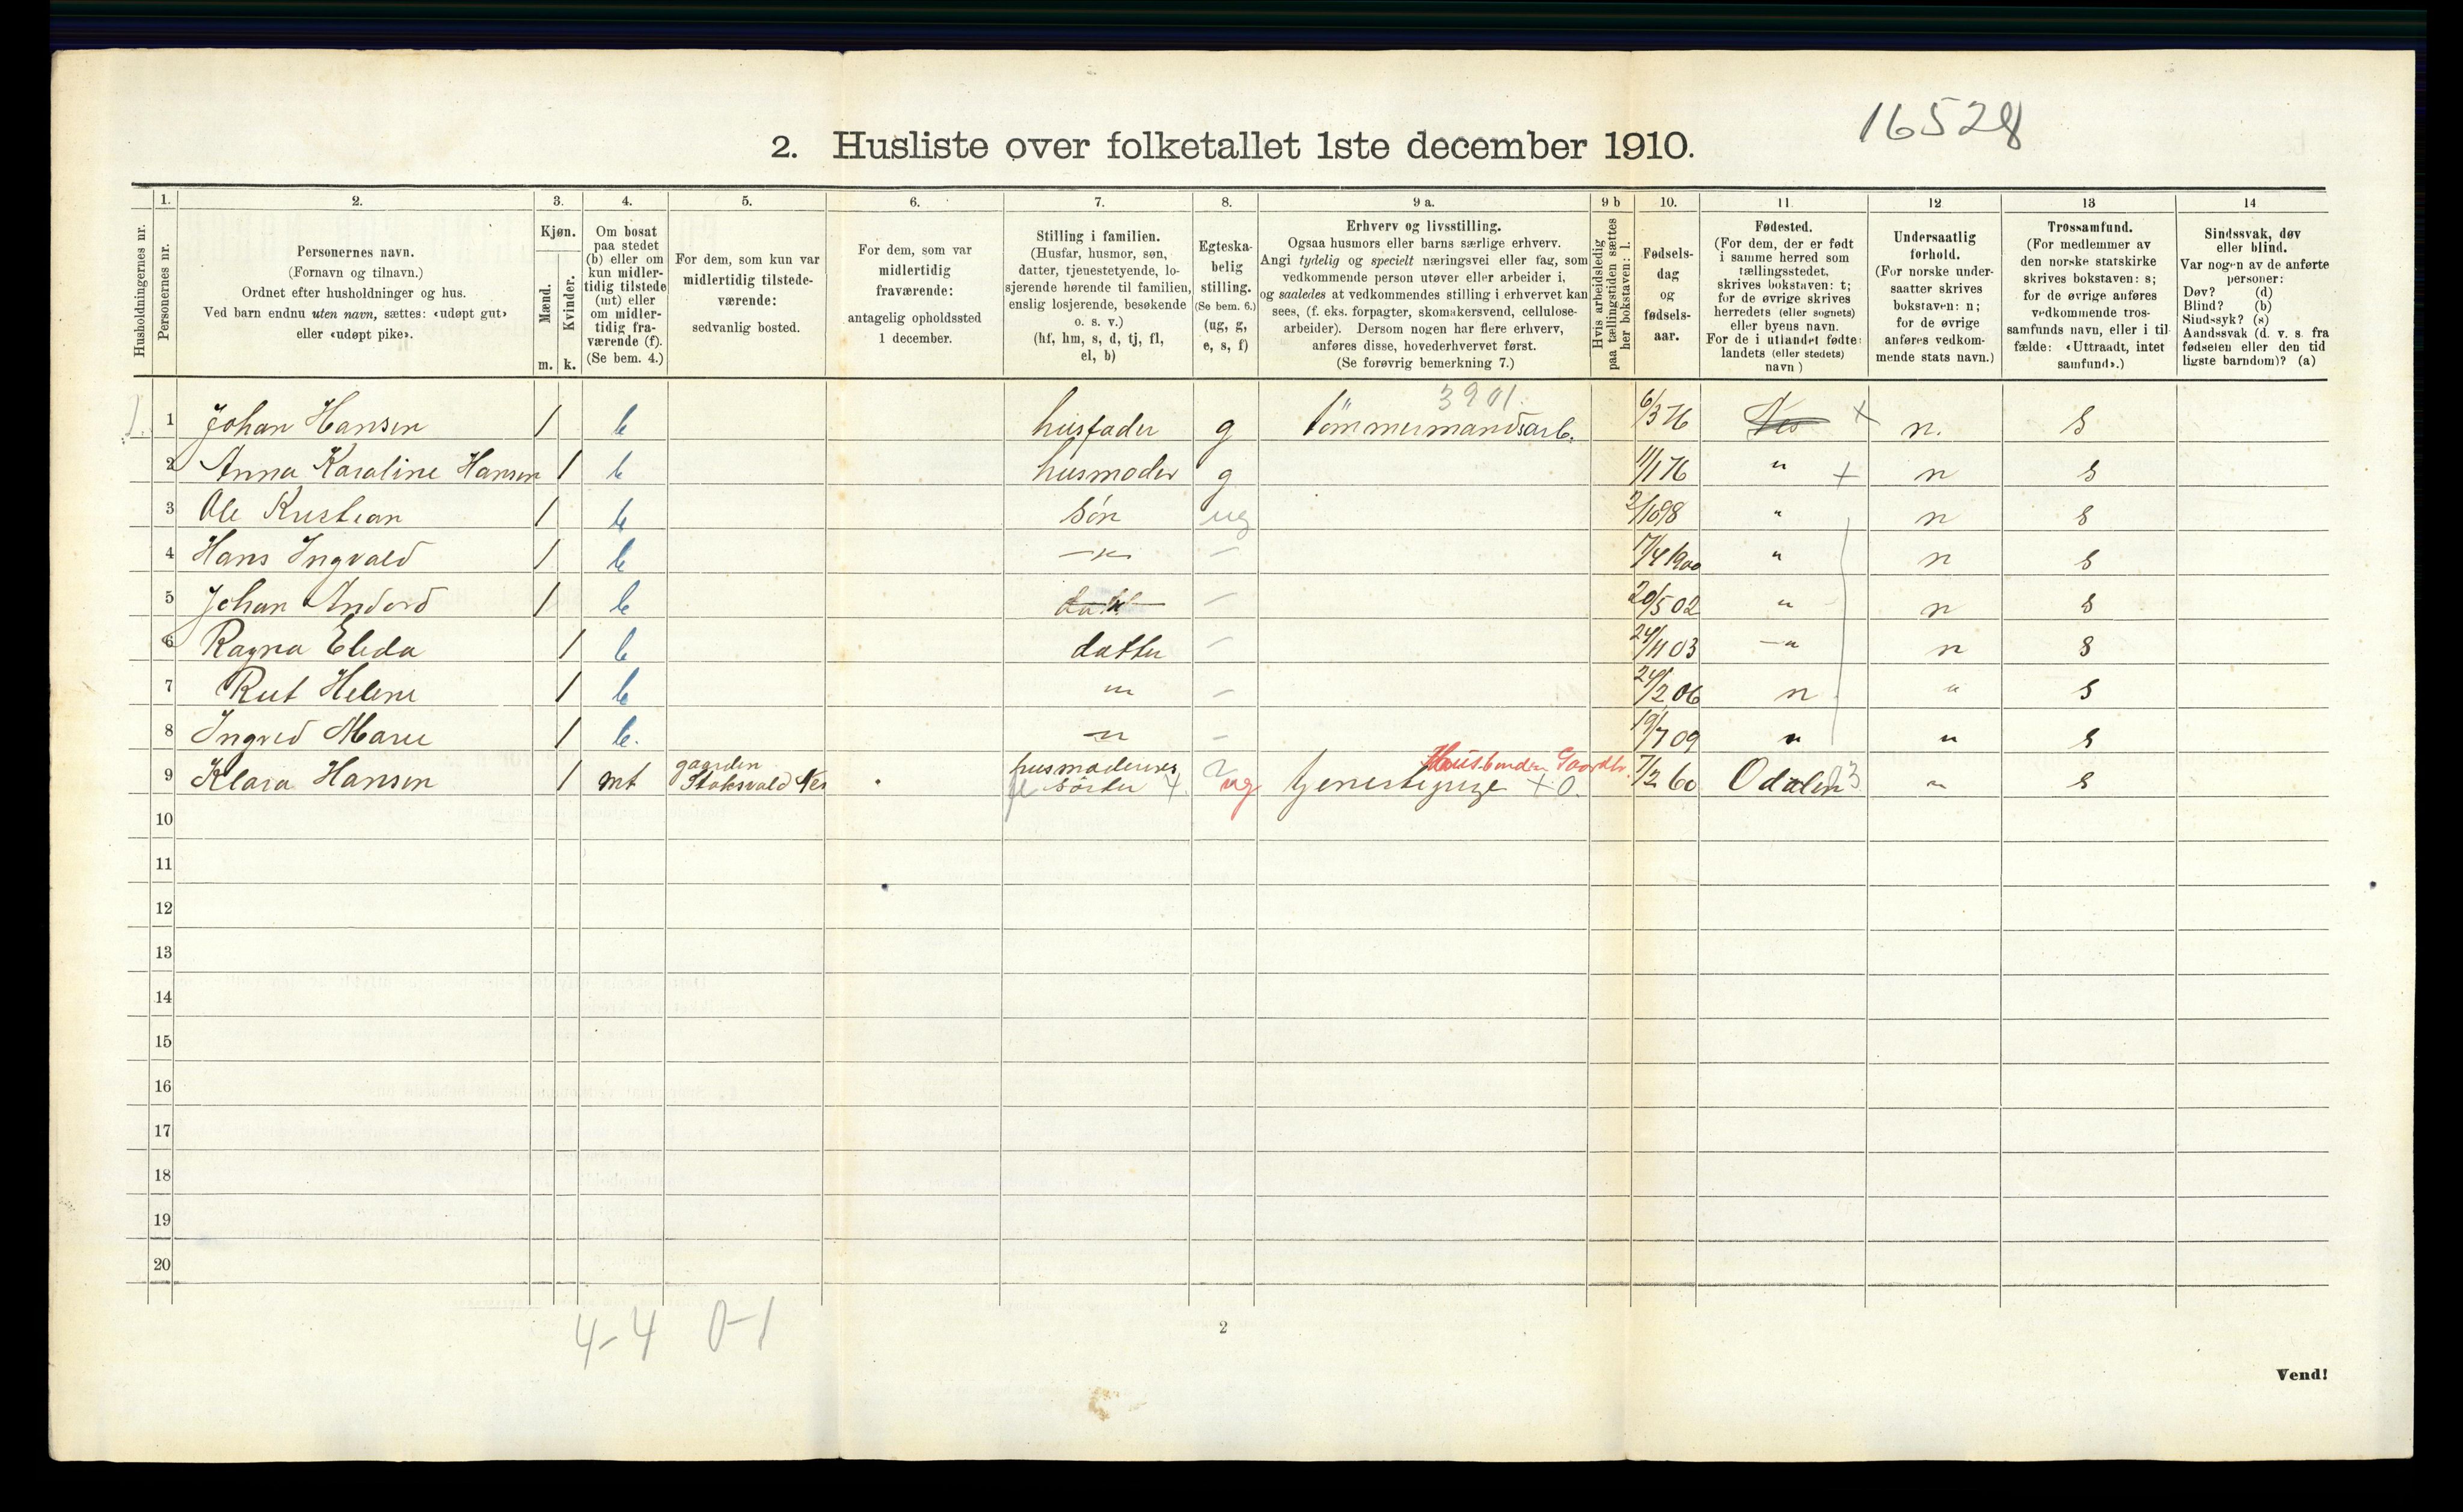 16528
2. Husliste over folketallet 1ste december 1910.
Husholdningernes nr.
1. Personernes nr.
2. Personernes navn.
(Fornavn og tilnavn.)
Ordnet efter husholdninger og hus.
Ved barn endnu uten navn, sættes: «udøpt gut»
eller «udøpt pike».
3. Kjøn.
Mænd. m.
Kvinder. k.
4. Om bosat
paa stedet
(b) eller om
kun midler-
tidig tilstede
(mt) eller
om midler-
tidig fra-
værende (f).
(Se bem. 4.)
5. For dem, som kun var
midlertidig tilstede-
værende:
sedvanlig bosted.
6. For dem, som var
midlertidig
fraværende:
antagelig opholdssted
1 december.
7. Stilling i familien.
(Husfar, husmor, søn,
datter, tjenestetyende, lo-
sjerende hørende til familien,
enslig losjerende, besøkende
o. s. v.)
(hf, hm, s, d, tj, fl,
el, b)
8. Egteska-
belig
stilling.
(Se bem. 6.)
(ug, g,
e, s, f)
9 a. Erhverv og livsstilling.
Ogsaa husmors eller barns særlige erhverv.
Angi tydelig og specielt næringsvei eller fag, som
vedkommende person utøver eller arbeider i,
og saaledes at vedkommendes stilling i erhvervet kan
sees, (f. eks. forpagter, skomakersvend, cellulose-
arbeider). Dersom nogen har flere erhverv,
anføres disse, hovederhvervet først.
(Se forøvrig bemerkning 7.)
9 b Hvis arbeidsledig
paa tællingstiden sættes
her bokstaven: l.
10. Fødsels-
dag
og
fødsels-
aar.
11. Fødested.
(For dem, der er født
i samme herred som
tællingsstedet,
skrives bokstaven: t;
for de øvrige skrives
herredets (eller sognets)
eller byens navn.
For de i utlandet fødte:
landets (eller stedets)
navn)
12 Undersaatlig
forhold.
(For norske under-
saatter skrives
bokstaven: n;
for de øvrige
anføres vedkom-
mende stats navn.)
13 Trossamfund.
(For medlemmer av
den norske statskirke
skrives bokstaven: s;
for de øvrige anføres
vedkommende tros-
samfunds navn, eller i til-
fælde: «Uttraadt, intet
samfund».)
14 Sindssvak, døv
eller blind.
Var nogen av de anførte
personer:
Døv? (d)
Blind? (b)
Sindssyk? (s)
Aandssvak (d. v. s. fra
fødselen eller den tid
ligste barndom)? (a)
3901.
1. 1 Johan Hansen 1 b husfader g tömmermandsarb. 6/3 76 Nes + n. s
2 Anna Karaline Hansen 1 b husmoder g 11/1 76 " + n s
3 Ole Kristian 1 b sön ug 2/10 98 " n s
4 Hans Ingvald 1 b —"— – 17/4 1900 " n s
5 Johan Andord 1 b – 20/5 02 " n s
6 Ragna Elida 1 b datter – 24/11 03 —" n s
7 Rut Helene 1 b " – 24/2 06 n " s
8 Ingrid Marie 1 b. —"— – 19/7 09 " " s
9 Klara Hansen 1 mt gaarden Stoksvald Nes husmoderens söster ug tjenestepige + 0. Husbonden Gaardbr. 7/2 60 Odalen 3 " s
10
11
12
13
14
15
16
17
18
19
20
4-4 0-1
2
Vend!